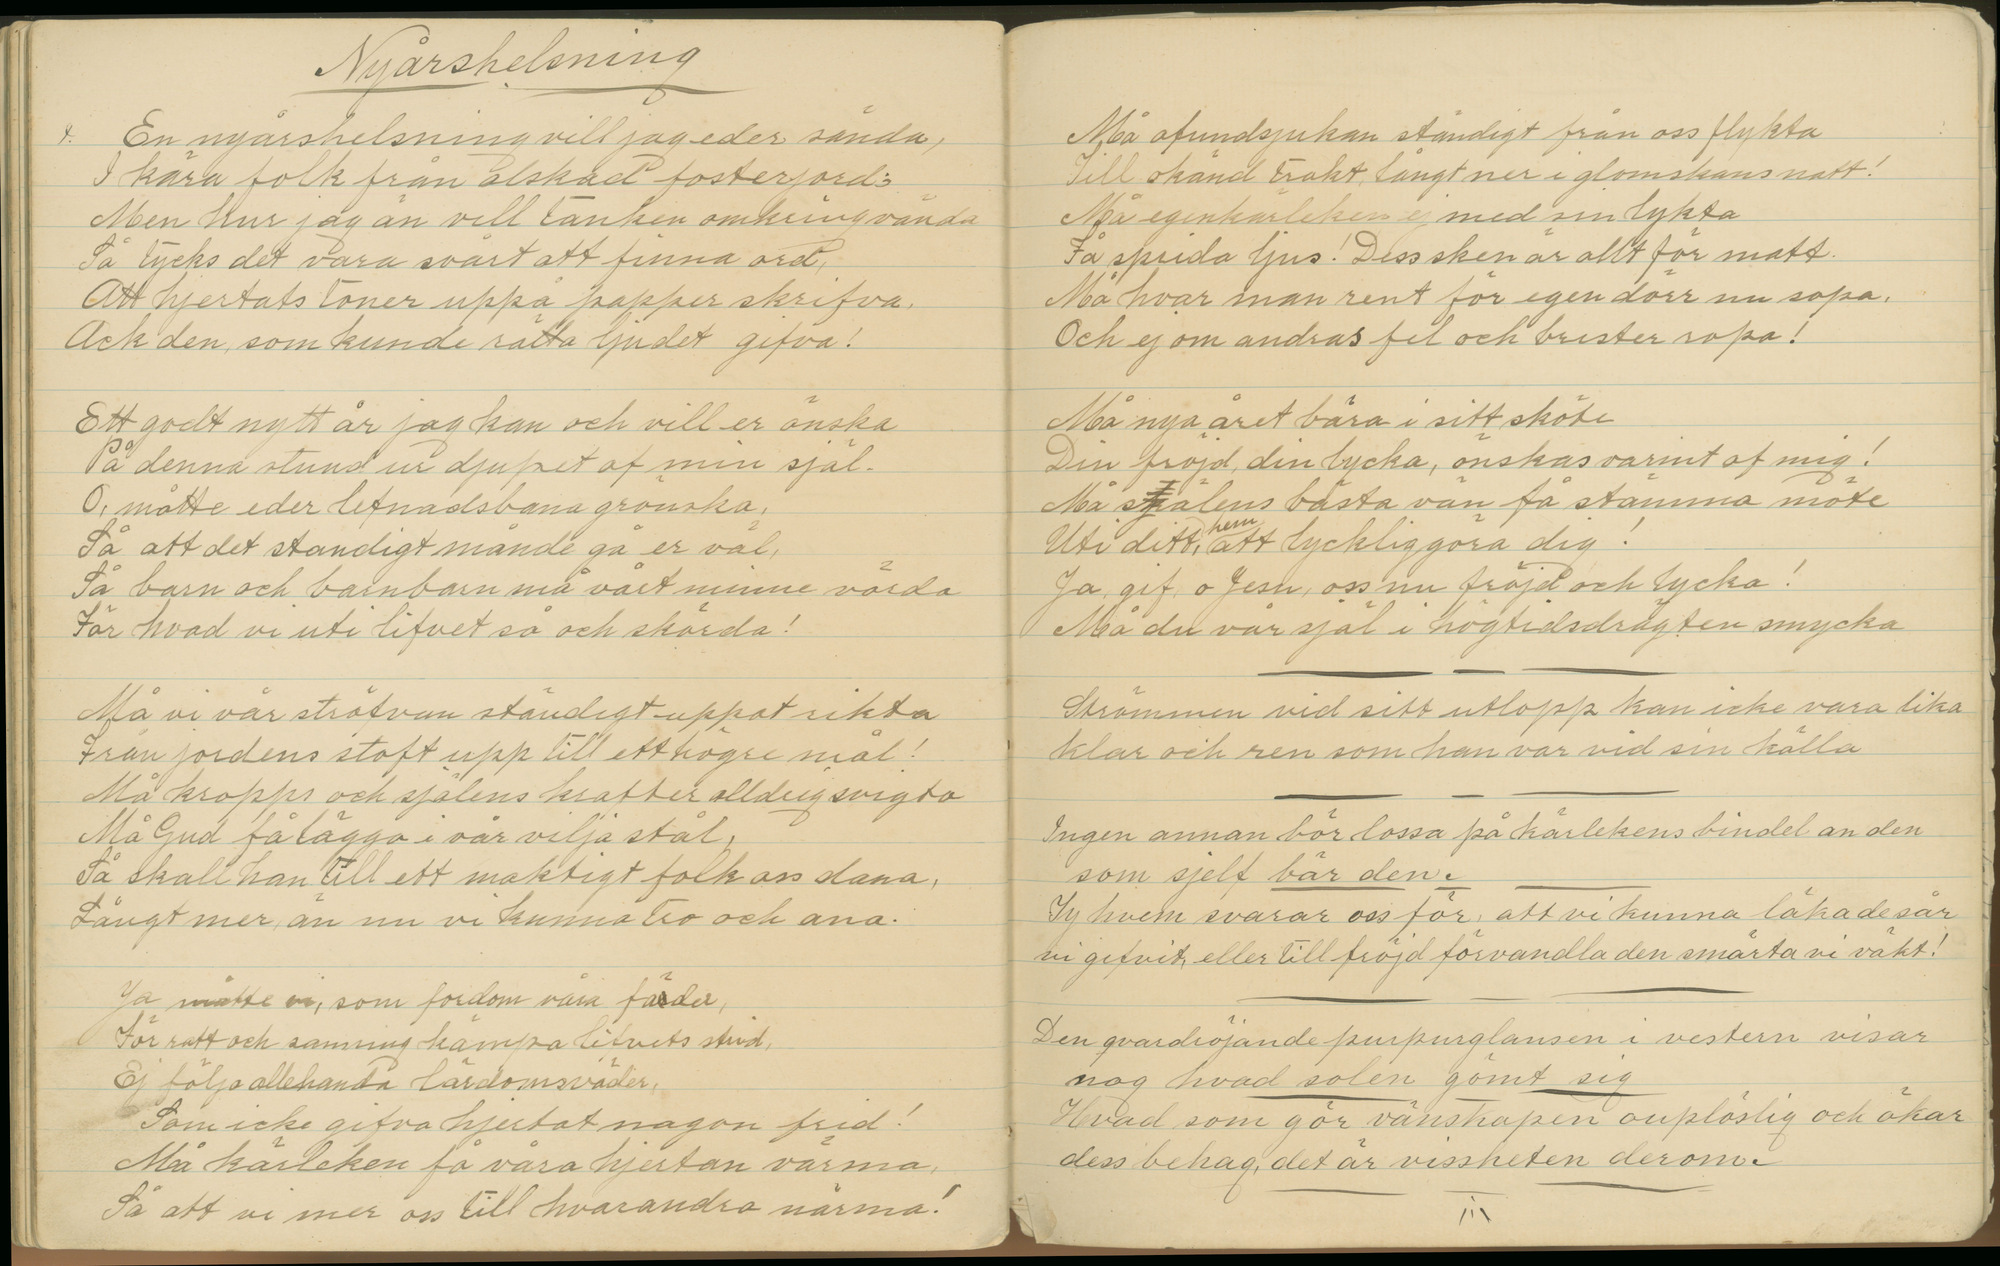 Nyårshelsning
En nyårshelsning vill jag eder sända,
I kära folk från älskad fosterjord;
Men hur jag än vill tanken omkringvända
Så tycks det vara svårt att finna ord,
Att hjertats toner uppå papper skrifva.
Ack den, som kunde rätta ljudet gifva!
Ett godt nytt år jag kan och vill er önska
På denna stund ur djupet af min själ.
O, måtte eder lefnadsbana grönska,
Så att det standigt månde gå er väl,
Så barn och barnbarn må vårt minne vörda
För hvad vi uti lifvet så och skörda!
Må vi vår sträfvan ständigt uppåt rikta
Från jordens stoft upp till ett högre mål!
Må kropps och själens krafter alldrig svigta
Må Gud få lägga i vår vilja stål,
Så skall han till ett mäktigt folk oss dana,
Långt mer, än nu vi kunna tro och ana.
Ja måtte vi, som fordom våra fäder,
För rätt och sanning kämpa lifvets strid,
Ej följa allehanda lärdomsväder,
Som icke gifva hjertat någon frid!
Må kärleken få våra hjertan värma,
Så att vi mer oss till hvarandra närma!
Må afundsjukan ständigt från oss flykta
Till okänd trakt, långt ner i glömskans natt!
Må egenkärleken ej med sin lykta
Få sprida ljus! Dess sken är allt för matt.
Må hvar man rent för egen dörr nu sopa,
Och ej om andras fel och brister ropa!
Må nya året bära i sitt sköte
Din fröjd, din lycka, önskas varmt af mig!
Må själens bästa vän få stämma möte
Uti ditt hem, att lyckliggöra dig!
Ja, gif, o Jesu, oss nu fröjd och lycka!
Må du vår själ i högtidsdrägten smycka
Strömmen vid sitt utlopp kan icke vara lika
klar och ren som han var vid sin källa
Ingen annan bör lossa på kärlekens bindel an den
som sjelf bär den.
Ty hvem svarar oss för, att vi kunna läka de sår
vi gifvit, eller till fröjd förvandla den smärta vi väkt!
Den qvardröjande purpurglansen i vestern visar
nog hvad solen gömt sig
Hvad som gör vänskapen ouplöslig och ökar
dess behag, det är vissheten derom.